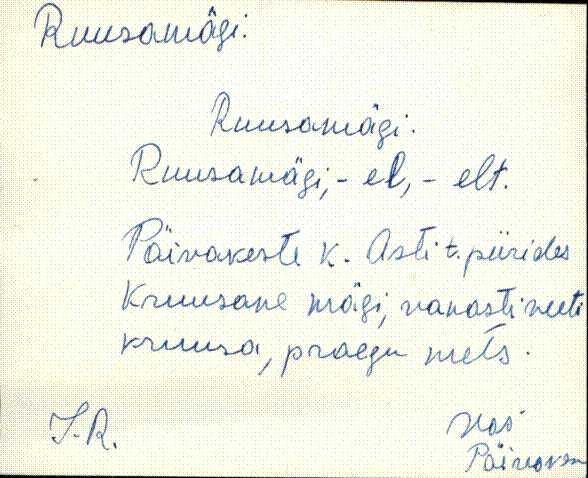 Ruusamägi.
Ruusamägi.
Ruusamägi, - el, - elt.
Päivakeste k. Asti t. piirides
Kruusane mägi, vanasti veeti
kruusa, praegu mets.
J. R.